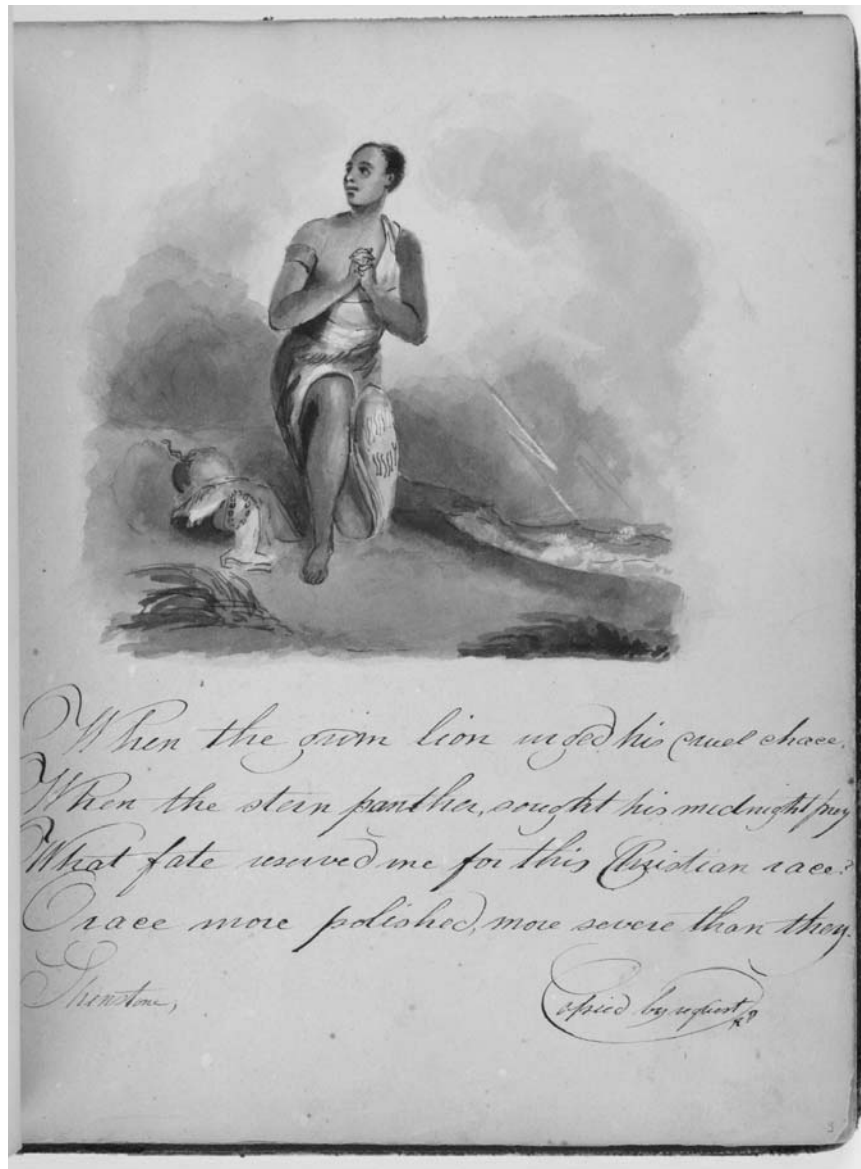 When the grim lion urged his cruel chace,
When the stern panther, sought his midnight prey
What fate reserved me for this Christian race?
O race more polished, more severe than they.
Shenstone,
Copied by request
3